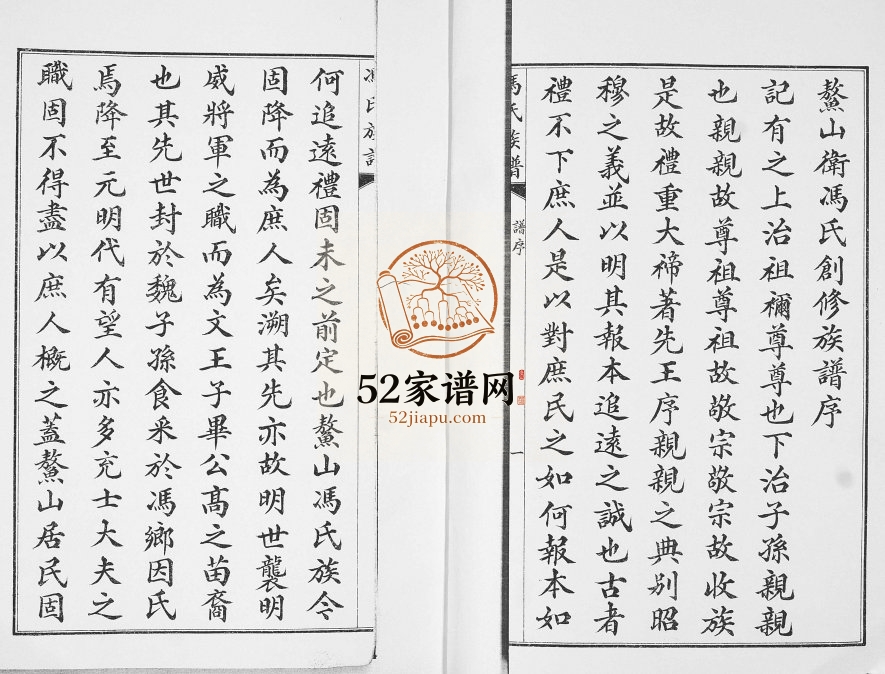 鰲山衛馮氏創修族譜序
記有之上治祖禰尊尊也下治子孫親親
也親親故尊祖尊祖故敬宗敬宗故收族
是故禮重大禘著先王序親親之典別昭
穆之義並以明其報本追遠之誠也古者
禮不下庶人是以對庶民之如何報本如
馮氏族譜
譜序
一
何追遠禮固未之前定也鰲山馮氏族今
固降而為庶人矣溯其先亦故明世襲明
威將軍之職而為文王子畢公高之苗裔
也其先世封於魏子孫食釆於馮鄉因氏
焉降至元明代有望人亦多充士大夫之
職固不得盡以庶人概之蓋鰲山居民固
馮氏族譜
52家谱网
52jiapu.com